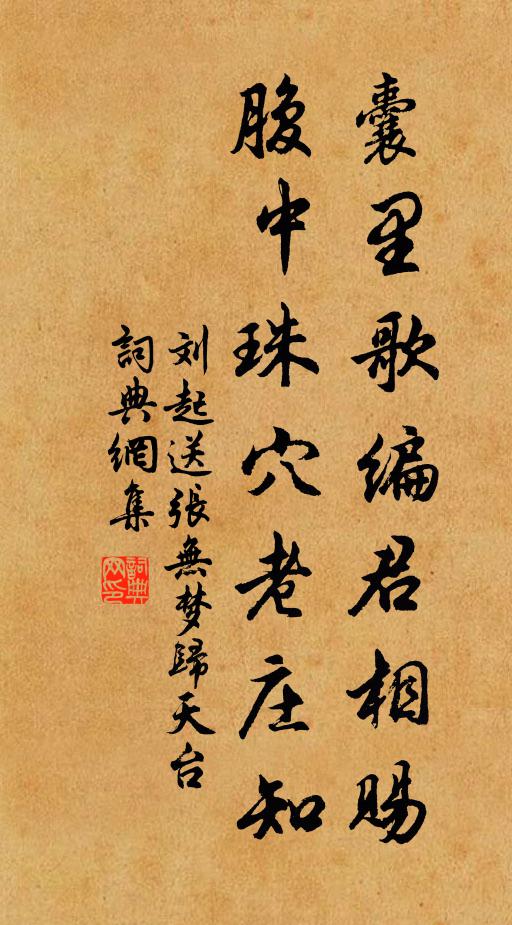 囊里歌编君相賜
腹中珠穴老庄知
刘起送張無梦歸天台
詞典網集
詞典网印